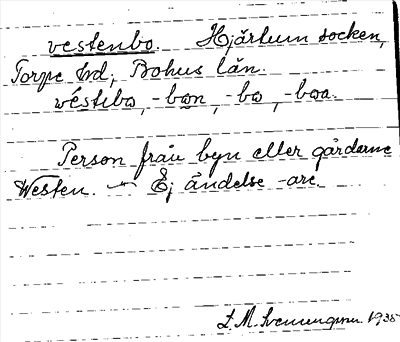 vestenbo. Hjärtum socken,
Torpe hd, Bohus län.
véstibo, -bon, -bo, -boa.
Person från byn eller gårdarne
Westen. — Ej ändelse -are.
L. M. Svenungsson 1935